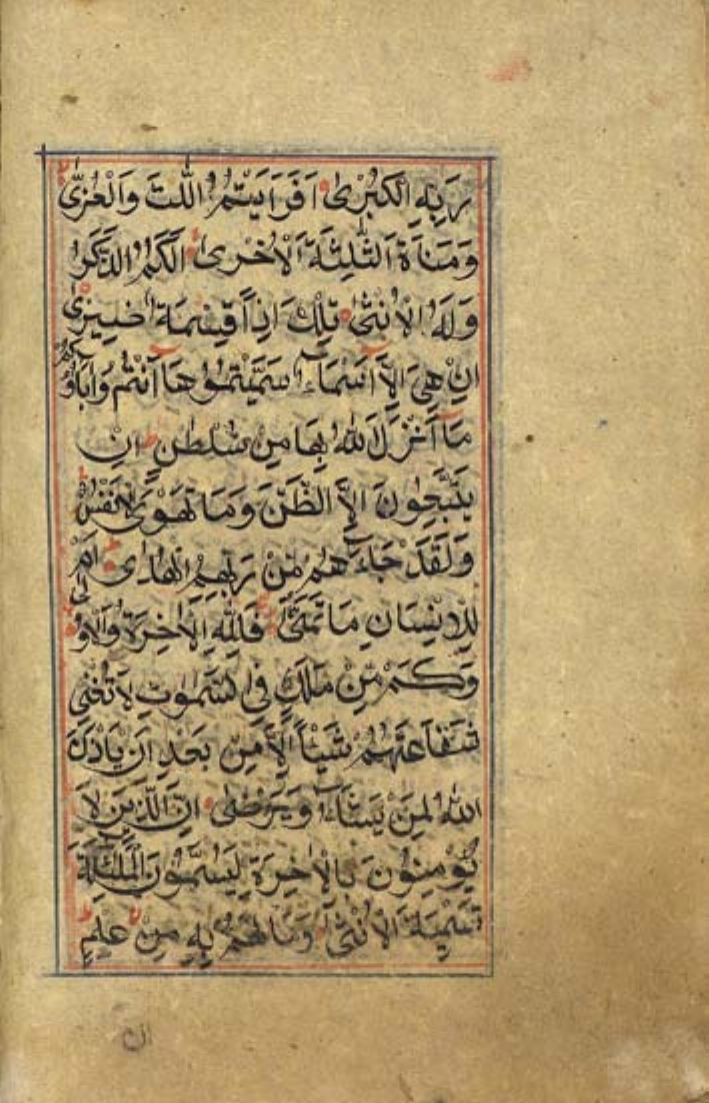 رَبِّهِ الْكُبْرٰى اَفَرَاَيْتُمُ اللّٰتَ وَالْعُزّٰى
وَمَنَاةَ الثَّلِثَةَ الْاُخْرٰى اَلَكُمُ الذَّكَرُ
وَلَهُ الْاُنْثٰى تِلْكَ اِذًا قِسْمَةٌ ضِيْزٰى
اِنْ هِيَ اِلَّا اَسْمَاءٌ سَمَّيْتُمُوْهَا اَنْتُمْ وَاٰبَاؤُكُمْ
مَا اَنْزَلَ اللّٰهُ بِهَا مِنْ سُلْطٰنٍ اِنْ
يَتَّبِعُوْنَ اِلَّا الظَّنَّ وَمَا تَهْوَى الْاَنْفُسُ
وَلَقَدْ جَاءَهُمْ مِّنْ رَبِّهِمُ الْهُدٰى اَمْ
لِلْاِنْسَانِ مَا تَمَنّٰى فَلِلّٰهِ الْاٰخِرَةُ وَالْاُوْلٰى
وَكَمْ مِّنْ مَلَكٍ فِي السَّمٰوٰتِ لَا تُغْنِيْ
شَفَاعَتُهُمْ شَيْئًا اِلَّا مِنْ بَعْدِ اَنْ يَاْذَنَ
اللّٰهُ لِمَنْ يَشَاءُ وَيَرْضٰى اِنَّ الَّذِيْنَ لَا
يُؤْمِنُوْنَ بِالْاٰخِرَةِ لَيُسَمُّوْنَ الْمَلٰئِكَةَ
تَسْمِيَةَ الْاُنْثٰى وَمَا لَهُمْ بِهٖ مِنْ عِلْمٍ
ان